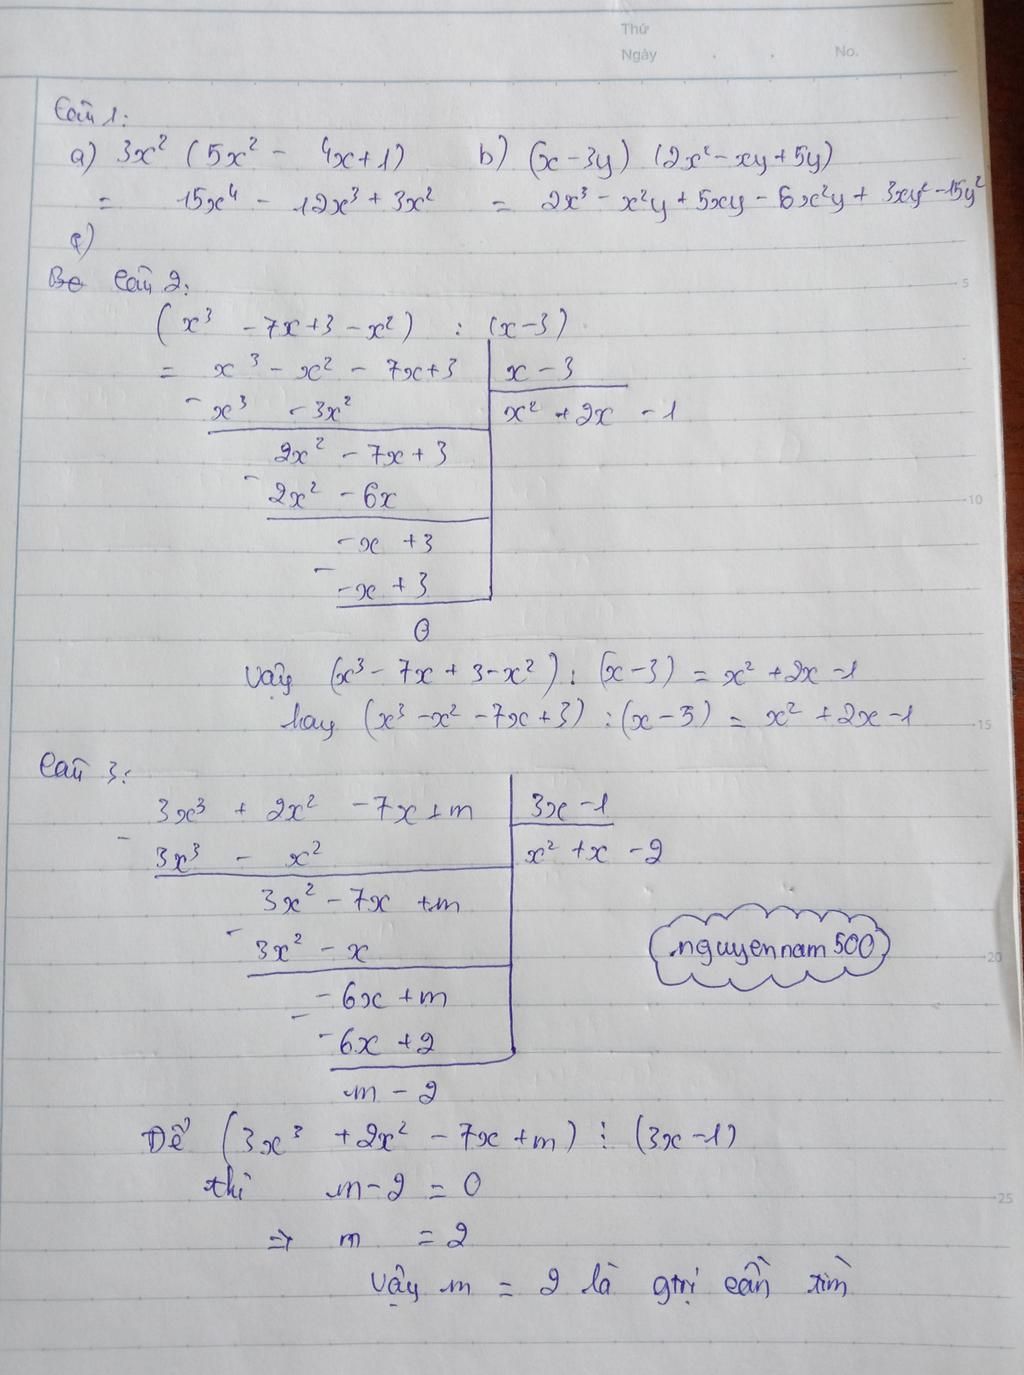 Thứ
Ngày . . No.
Câu 1:
a) 3x² (5x² - 4x+1) b) (x-3y) (2x²-xy+5y)
= 15x⁴ - 12x³ + 3x² = 2x³ - x²y + 5xy - 6x²y + 3xy² - 15y²
c)
Câu 2:
(x³ - 7x+3 - x²) : (x-3)
= x³ - x² - 7x+3 x - 3
- x³ - 3x² x² + 2x - 1
2x² - 7x + 3
- 2x² - 6x
-x + 3
- -x + 3
0
Vậy (x³ - 7x + 3 - x²) : (x - 3) = x² + 2x - 1
hay (x³ - x² - 7x + 3) : (x - 3) = x² + 2x - 1
Câu 3:
3x³ + 2x² - 7x + m 3x - 1
- 3x³ - x² x² + x - 2
3x² - 7x + m
- 3x² - x
nguyennam500
- 6x + m
- - 6x + 2
m - 2
Để (3x³ + 2x² - 7x + m) ⋮ (3x - 1)
thì m - 2 = 0
⇒ m = 2
Vậy m = 2 là gtrị cần tìm
5
10
15
20
25